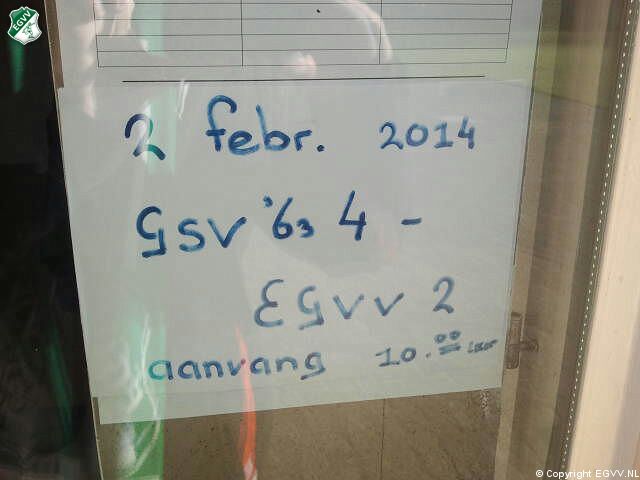 EGVV
2 febr. 2014
GSV '63 4 -
EGVV 2
aanvang 10.00 uur
© Copyright EGVV.NL